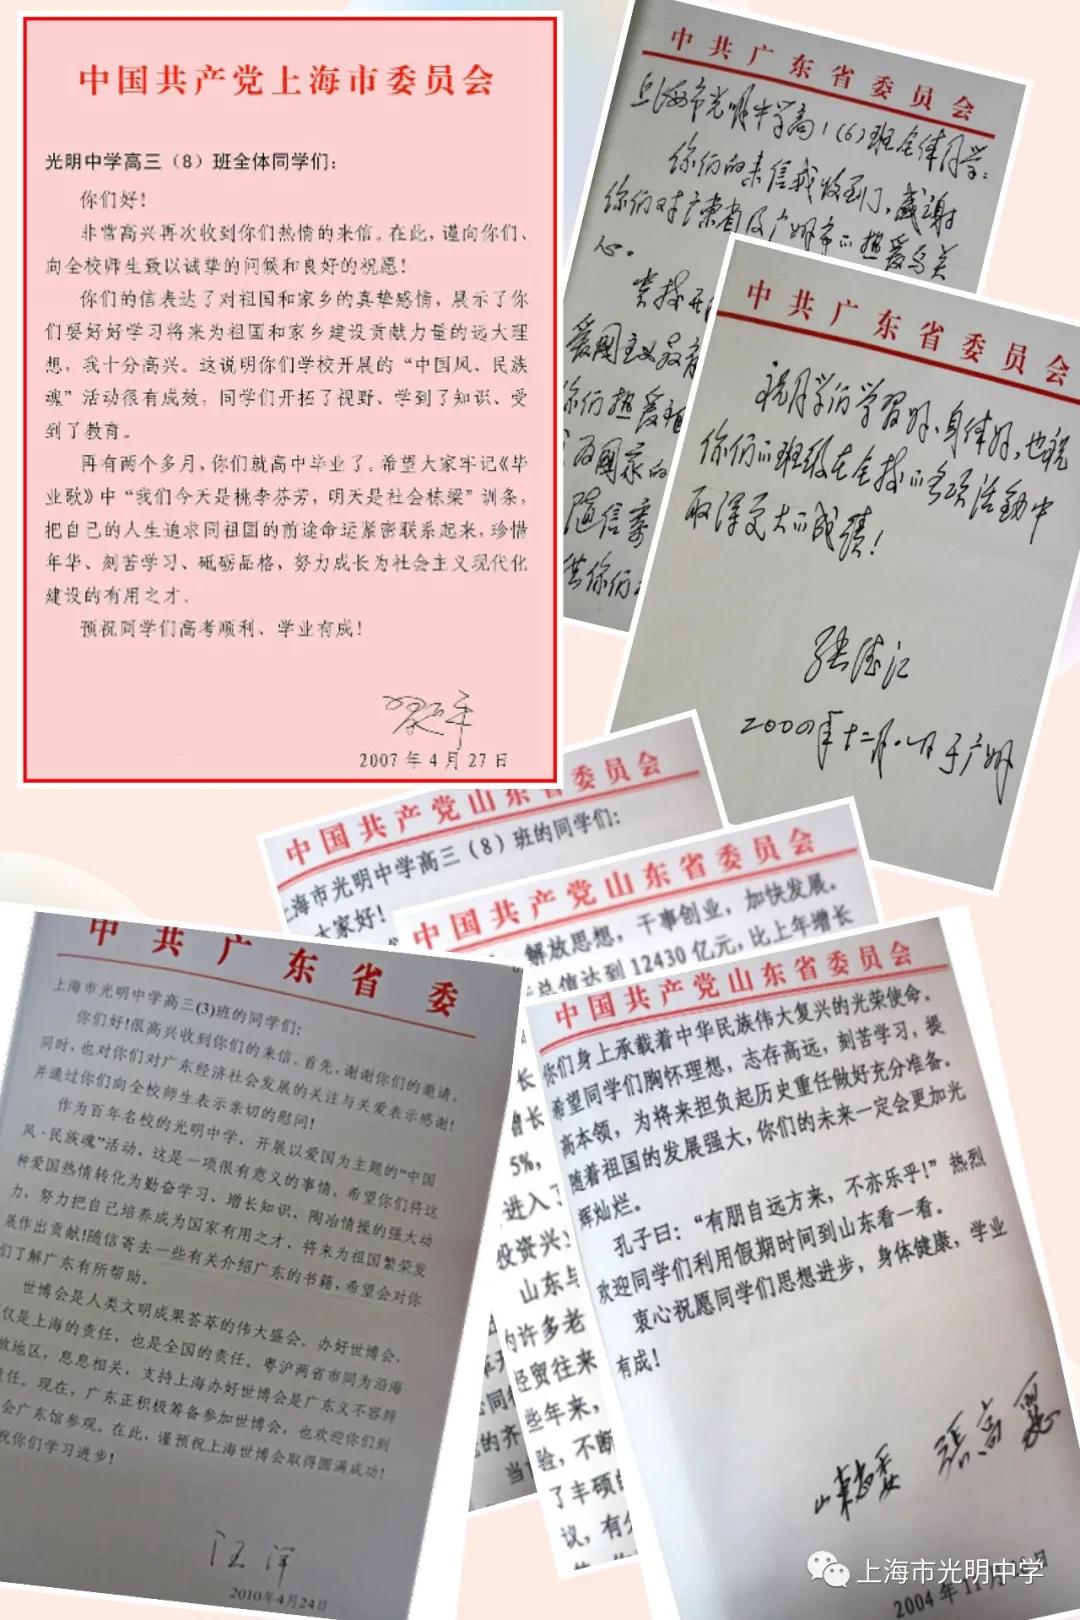 中国共产党上海市委员会
光明中学高三（8）班全体同学们：
你们好！
非常高兴再次收到你们热情的来信。在此，谨向你们、
向全校师生致以诚挚的问候和良好的祝愿！
你们的信表达了对祖国和家乡的真挚感情，展示了你
们要好好学习将来为祖国和家乡建设贡献力量的远大理
想，我十分高兴。这说明你们学校开展的“中国风、民族
魂”活动很有成效，同学们开拓了视野、学到了知识、受
到了教育。
再有两个多月，你们就高中毕业了。希望大家牢记《毕
业歌》中“我们今天是桃李芬芳，明天是社会栋梁”训条，
把自己的人生追求同祖国的前途命运紧密联系起来，珍惜
年华、刻苦学习、砥砺品格，努力成长为社会主义现代化
建设的有用之才。
预祝同学们高考顺利、学业有成！
2007年4月27日
中共广东省委员会
上海市光明中学高1(6)班全体同学：
你们的来信我收到了，感谢
你们对广东省及广州市的热爱与关
心。
爱国主义教育
你们热爱祖
为国家的
随信寄
供你们
中共广东省委员会
祝同学们学习好、身体好，也祝
你们的班级在全校的各项活动中
取得更大的成绩！
张德江
2000四年十二月八日于广州
中国共产党山东省委员会
上海市光明中学高三（8）班的同学们：
大家好！
中国共产党山东省委员会
解放思想，干事创业，加快发展。
总值达到12430亿元，比上年增长
长
增长
5%，
进入了
投资兴业
山东与
的许多老
经贸往来
些年来，
验，不断
了丰硕的
议，有
中国共产党山东省委员会
你们身上承载着中华民族伟大复兴的光荣使命。
希望同学们胸怀理想，志存高远，刻苦学习，提
高本领，为将来担负起历史重任做好充分准备。
随着祖国的发展强大，你们的未来一定会更加光
辉灿烂。
孔子曰：“有朋自远方来，不亦乐乎！”热烈
欢迎同学们利用假期时间到山东看一看。
衷心祝愿同学们思想进步，身体健康，学业
有成！
山东省委 张高丽
2004年11月
中共广东省委
上海市光明中学高三(3)班的同学们：
你们好！很高兴收到你们的来信。首先，谢谢你们的邀请，
同时，也对你们对广东经济社会发展的关注与关爱表示感谢！
并通过你们向全校师生表示亲切的慰问！
作为百年名校的光明中学，开展以爱国为主题的“中国
风·民族魂”活动，这是一项很有意义的事情。希望你们将这
种爱国热情转化为勤奋学习、增长知识、陶冶情操的强大动
力，努力把自己培养成为国家有用之才，将来为祖国繁荣发
展作出贡献！随信寄去一些有关介绍广东的书籍，希望会对你
们了解广东有所帮助。
世博会是人类文明成果荟萃的伟大盛会。办好世博会，
仅是上海的责任，也是全国的责任。粤沪两省市同为沿海
放地区，息息相关，支持上海办好世博会是广东义不容辞
责任。现在，广东正积极筹备参加世博会，也欢迎你们到
会广东馆参观。在此，谨预祝上海世博会取得圆满成功！
祝你们学习进步！
汪洋
2010年4月24日
上海市光明中学